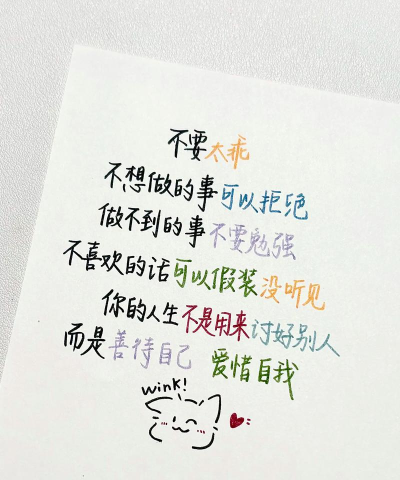 不要太乖
不想做的事可以拒绝
做不到的事不要勉强
不喜欢的话可以假装没听见
你的人生不是用来讨好别人
而是善待自己 爱惜自我
wink!